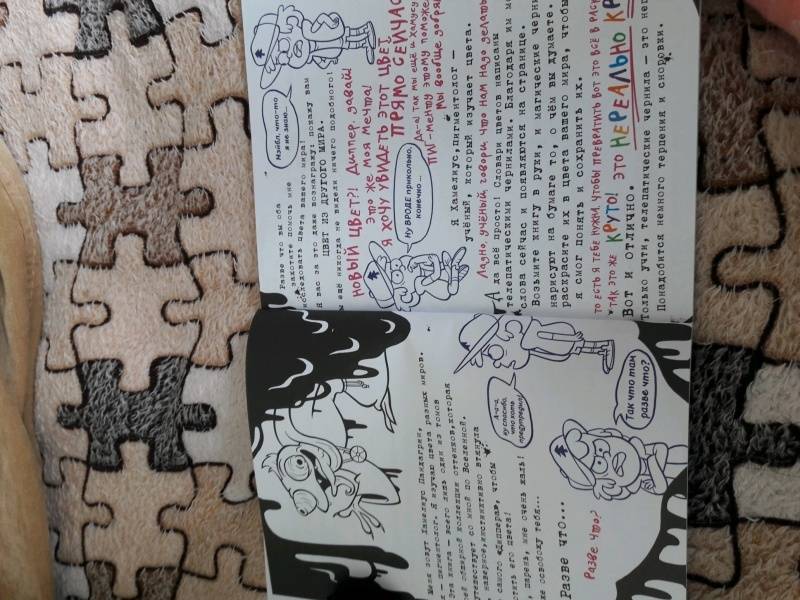 Меня зовут Хамелиус Пандагрин,
я пигментолог. Я изучаю цвета разных миров.
Эта книга — всего лишь один из томов
моей обширной коллекции оттенков, которая
путешествует со мной по Вселенной.
наверное, инстинктивно втянула
самого «Диппера», чтобы
его цвета!
парень, мне очень жаль!
же освобожу тебя...
Разве что...
А-а-а,
ну спасибо,
что хоть
предупредил!
РАЗВЕ ЧТО?
Так что там
разве что?
Разве что вы оба
захотите помочь мне
исследовать цвета вашего мира!
Я вас за это даже вознагражу: покажу вам
ЦВЕТ ИЗ ДРУГОГО МИРА.
Вы ещё никогда не видели ничего подобного!
Мэйбл, что-то
я не знаю...
НОВЫЙ ЦВЕТ?! ДИППЕР, ДАВАЙ!
ЭТО ЖЕ МОЯ МЕЧТА!
Я ХОЧУ УВИДЕТЬ ЭТОТ ЦВЕТ
ПРЯМО СЕЙЧАС
Ну ВРОДЕ прикольно,
конечно...
ДА-А! ТАК МЫ ЕЩЁ И ХАМУСУ
ПИГ-МЕНТУ ЭТОМУ ПОМОЖЕМ
МЫ ВООБЩЕ ДОБРЯ
Я Хамелиус, пигментолог —
учёный, который изучает цвета.
ЛАДНО, УЧЁНЫЙ, ГОВОРИ, ЧТО НАМ НАДО ДЕЛАТЬ
А да всё просто! Словари цветов написаны
телепатическими чернилами. Благодаря им мо
слова сейчас и появляются на странице.
Возьмите книгу в руки, и магические черни
нарисуют на бумаге то, о чём вы думаете.
раскрасьте их в цвета вашего мира, чтобы
я смог понять и сохранить их.
ТО ЕСТЬ Я ТЕБЕ НУЖНА, ЧТОБЫ ПРЕВРАТИТЬ ВОТ ЭТО ВСЁ В РАСК
ТАК ЭТО ЖЕ КРУТО! ЭТО НЕРЕАЛЬНО КР
Вот и отлично.
Только учти, телепатические чернила — это не
Понадобится немного терпения и сноровки.